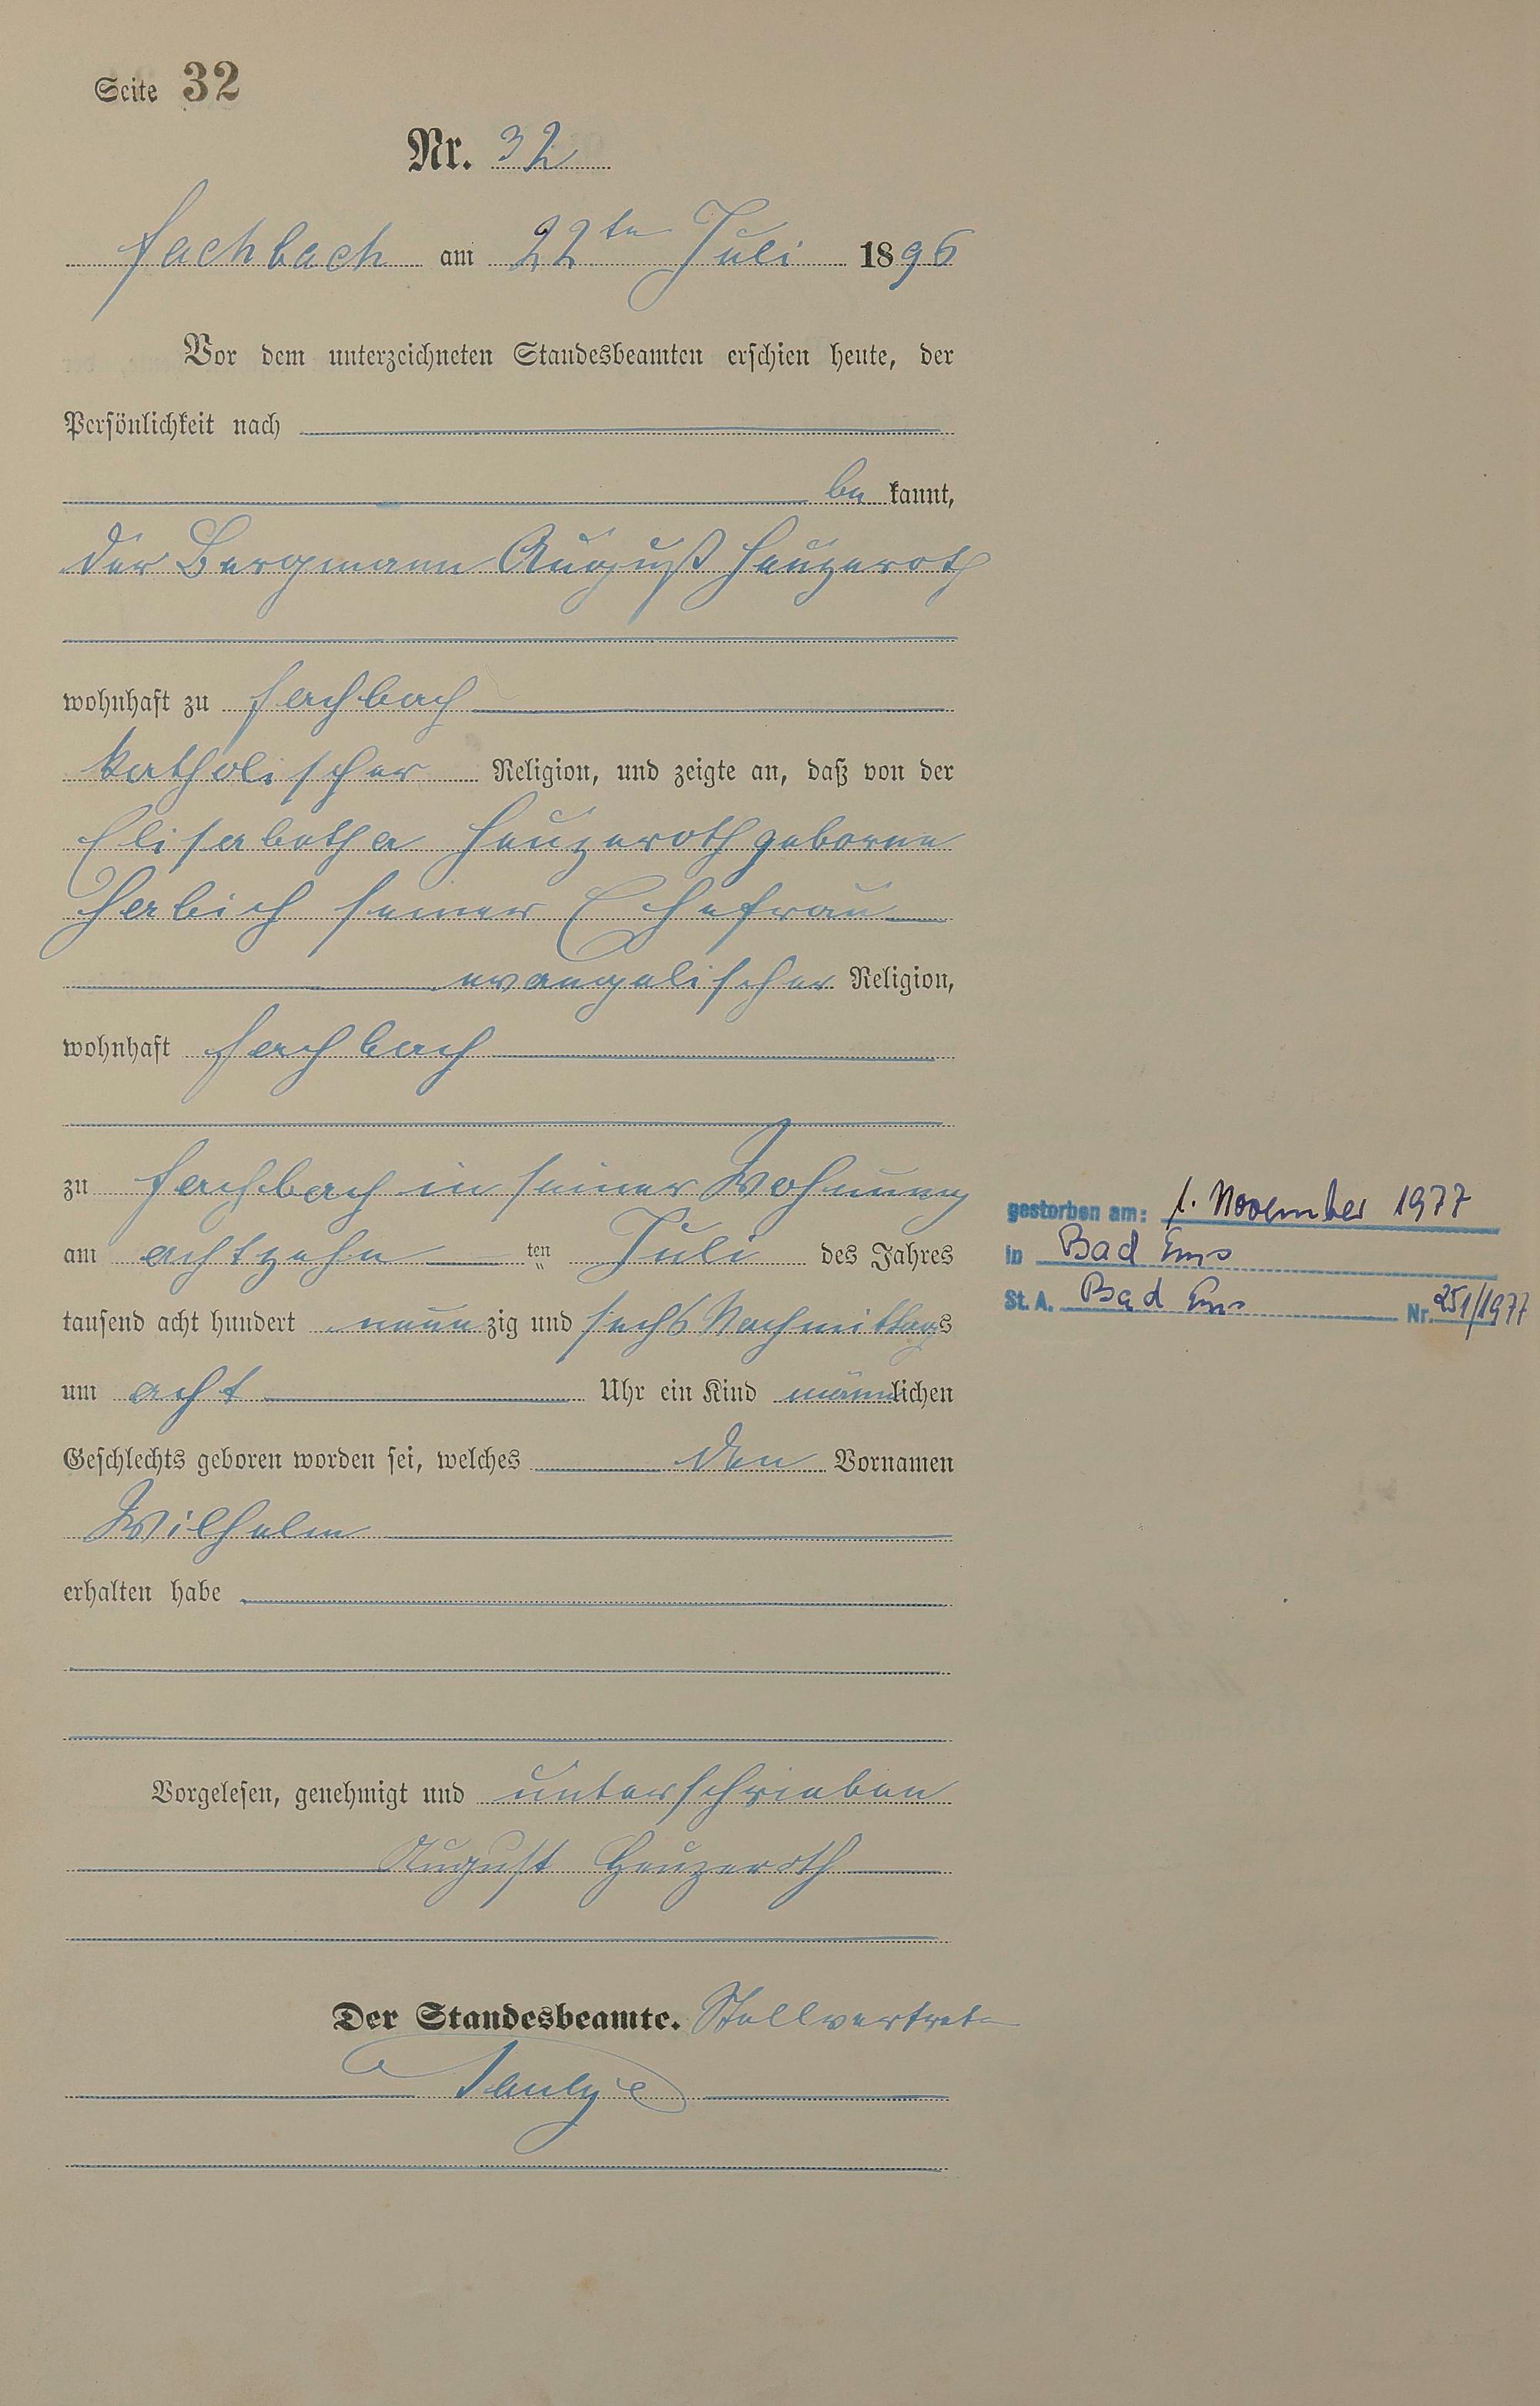 Seite 32
Nr. 32
Fachbach am 22ten Juli 1896
Vor dem unterzeichneten Standesbeamten erschien heute, der
Persönlichkeit nach
be kannt,
der Bergmann August Heuzeroth
wohnhaft zu Fachbach
katholischer Religion, und zeigte an, daß von der
Elisabetha Heuzeroth geborne
Herbich seiner Ehefrau
evangelischer Religion,
wohnhaft Fachbach
zu Fachbach in seiner Wohnung
am achtzehn ten Juli des Jahres
tausend acht hundert neunzig und sechs Nachmittags
um acht Uhr ein Kind männlichen
Geschlechts geboren worden sei, welches den Vornamen
Wilhelm
erhalten habe
Vorgelesen, genehmigt und unterschrieben
August Heuzeroth
Der Standesbeamte. Stellvertreter
gestorben am: 1. November 1977
in Bad Ems
St. A. Bad Ems Nr. 251/1977